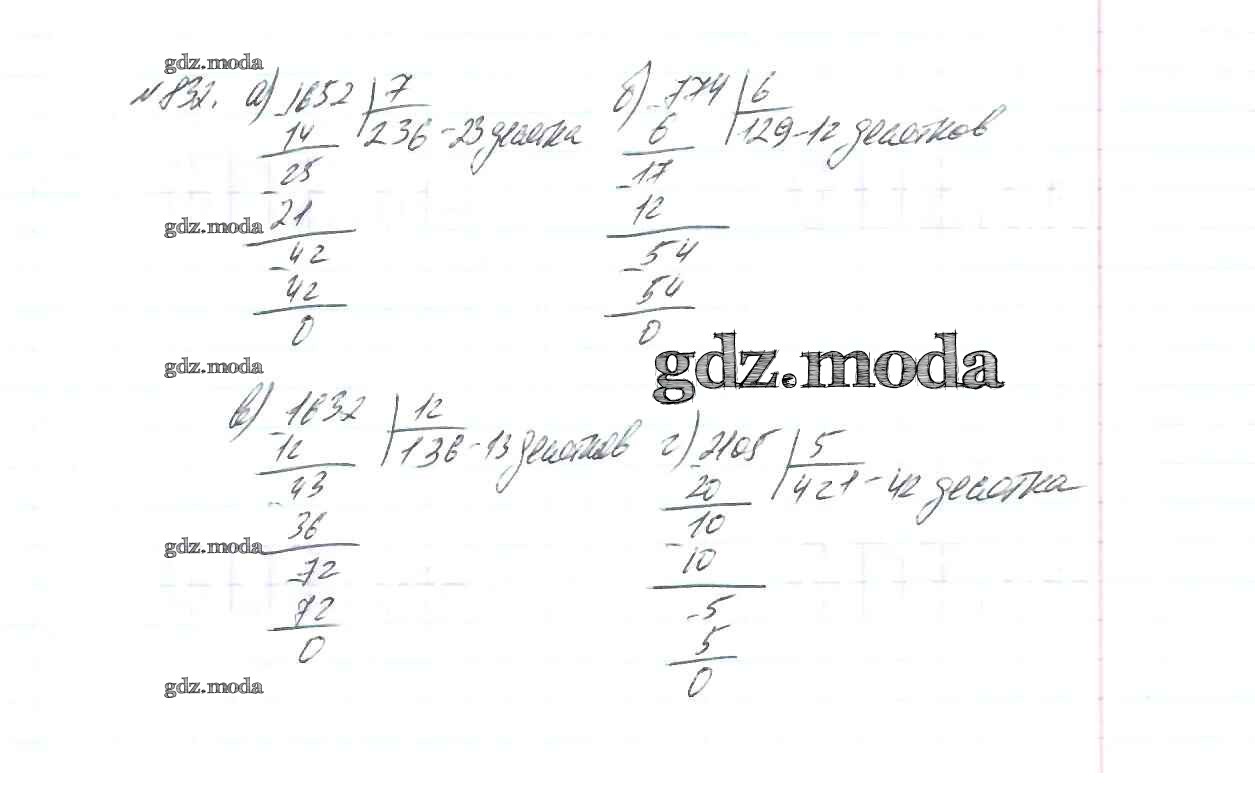 gdz.moda
№832. а) 1652 | 7 б) 774 | 6
14 236 - 23 десятка 6 129 - 12 десятков
25 17
gdz.moda 21 12
42 54
42 54
0 0
gdz.moda
gdz.moda
в) 1632 | 12 г) 2105 | 5
12 136 - 13 десятков 20 421 - 42 десятка
43 10
36 10
gdz.moda
72 5
72 5
0 0
gdz.moda